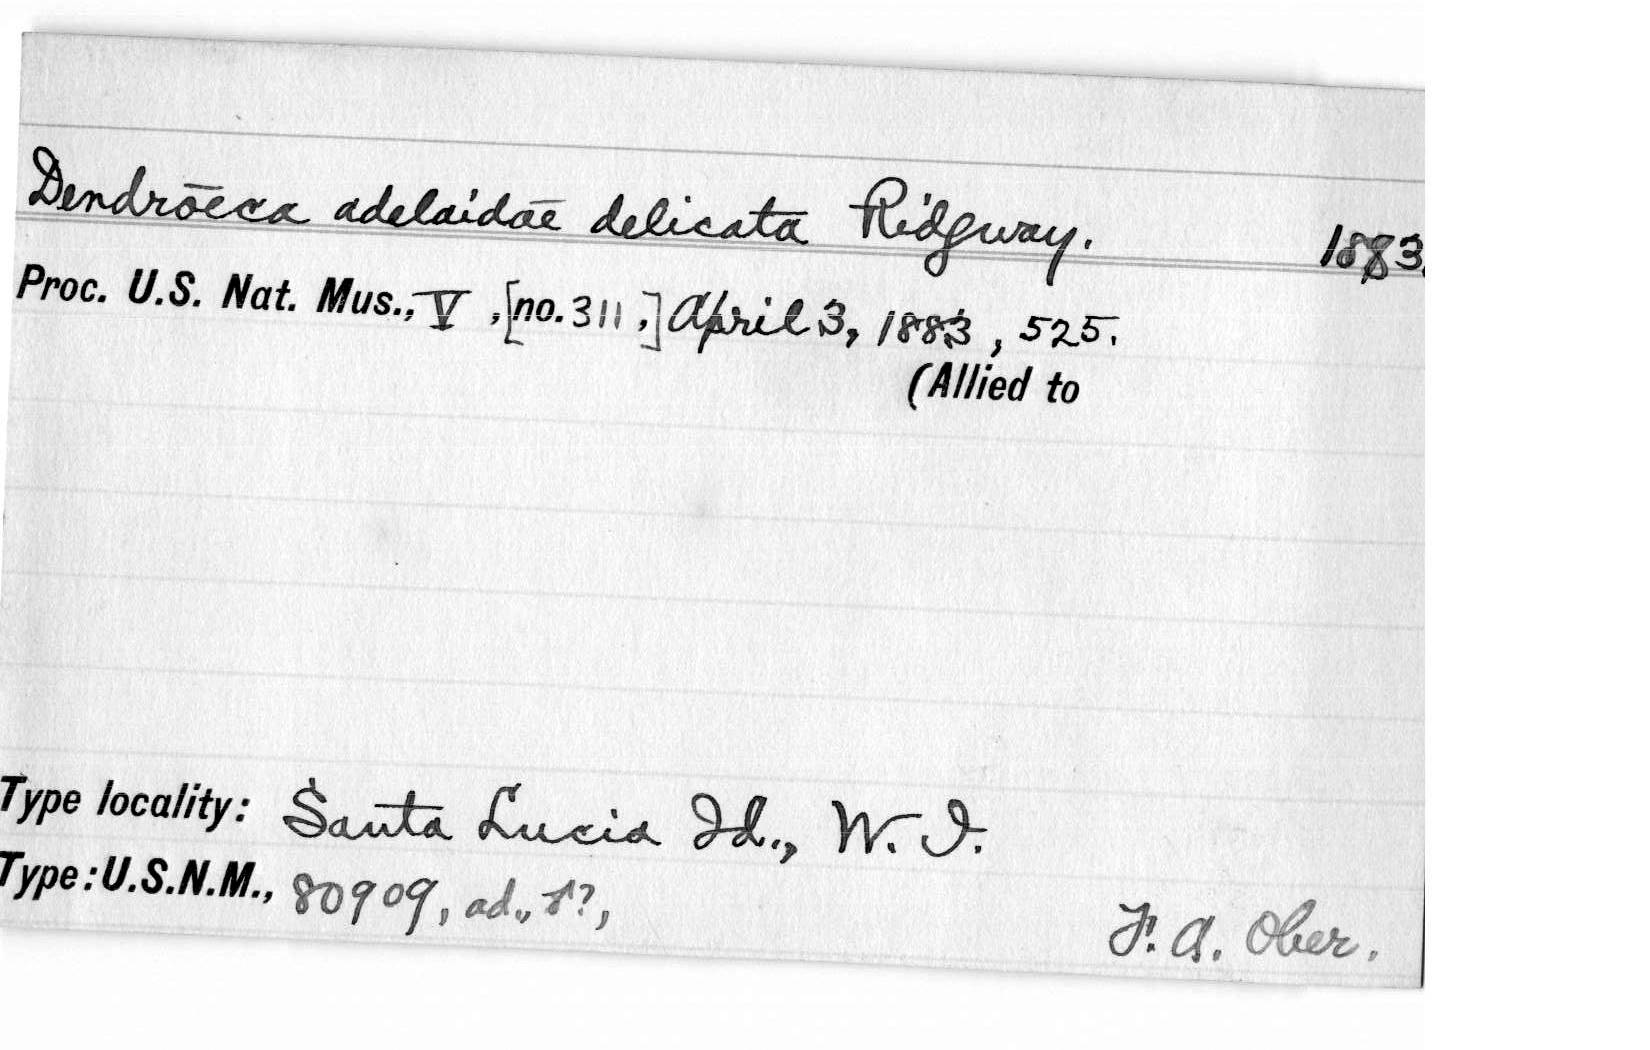 Dendrœca adelaidæ delicata Ridgway. 1883.
Proc. U.S. Nat. Mus., V, [no. 311,] April 3, 1883, 525.
(Allied to
Type locality: Santa Lucia Id., W. I.
Type: U.S.N.M., 80909, ad., ♂?,
F. A. Ober.